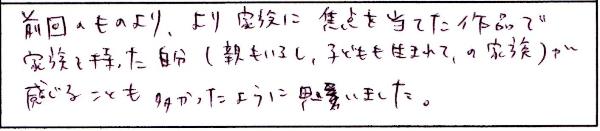 前回のものより、より家族に焦点を当てた作品で
家族を持った自分（親もいるし、子どもも生まれて、の家族）が
感じることも多かったように思いました。